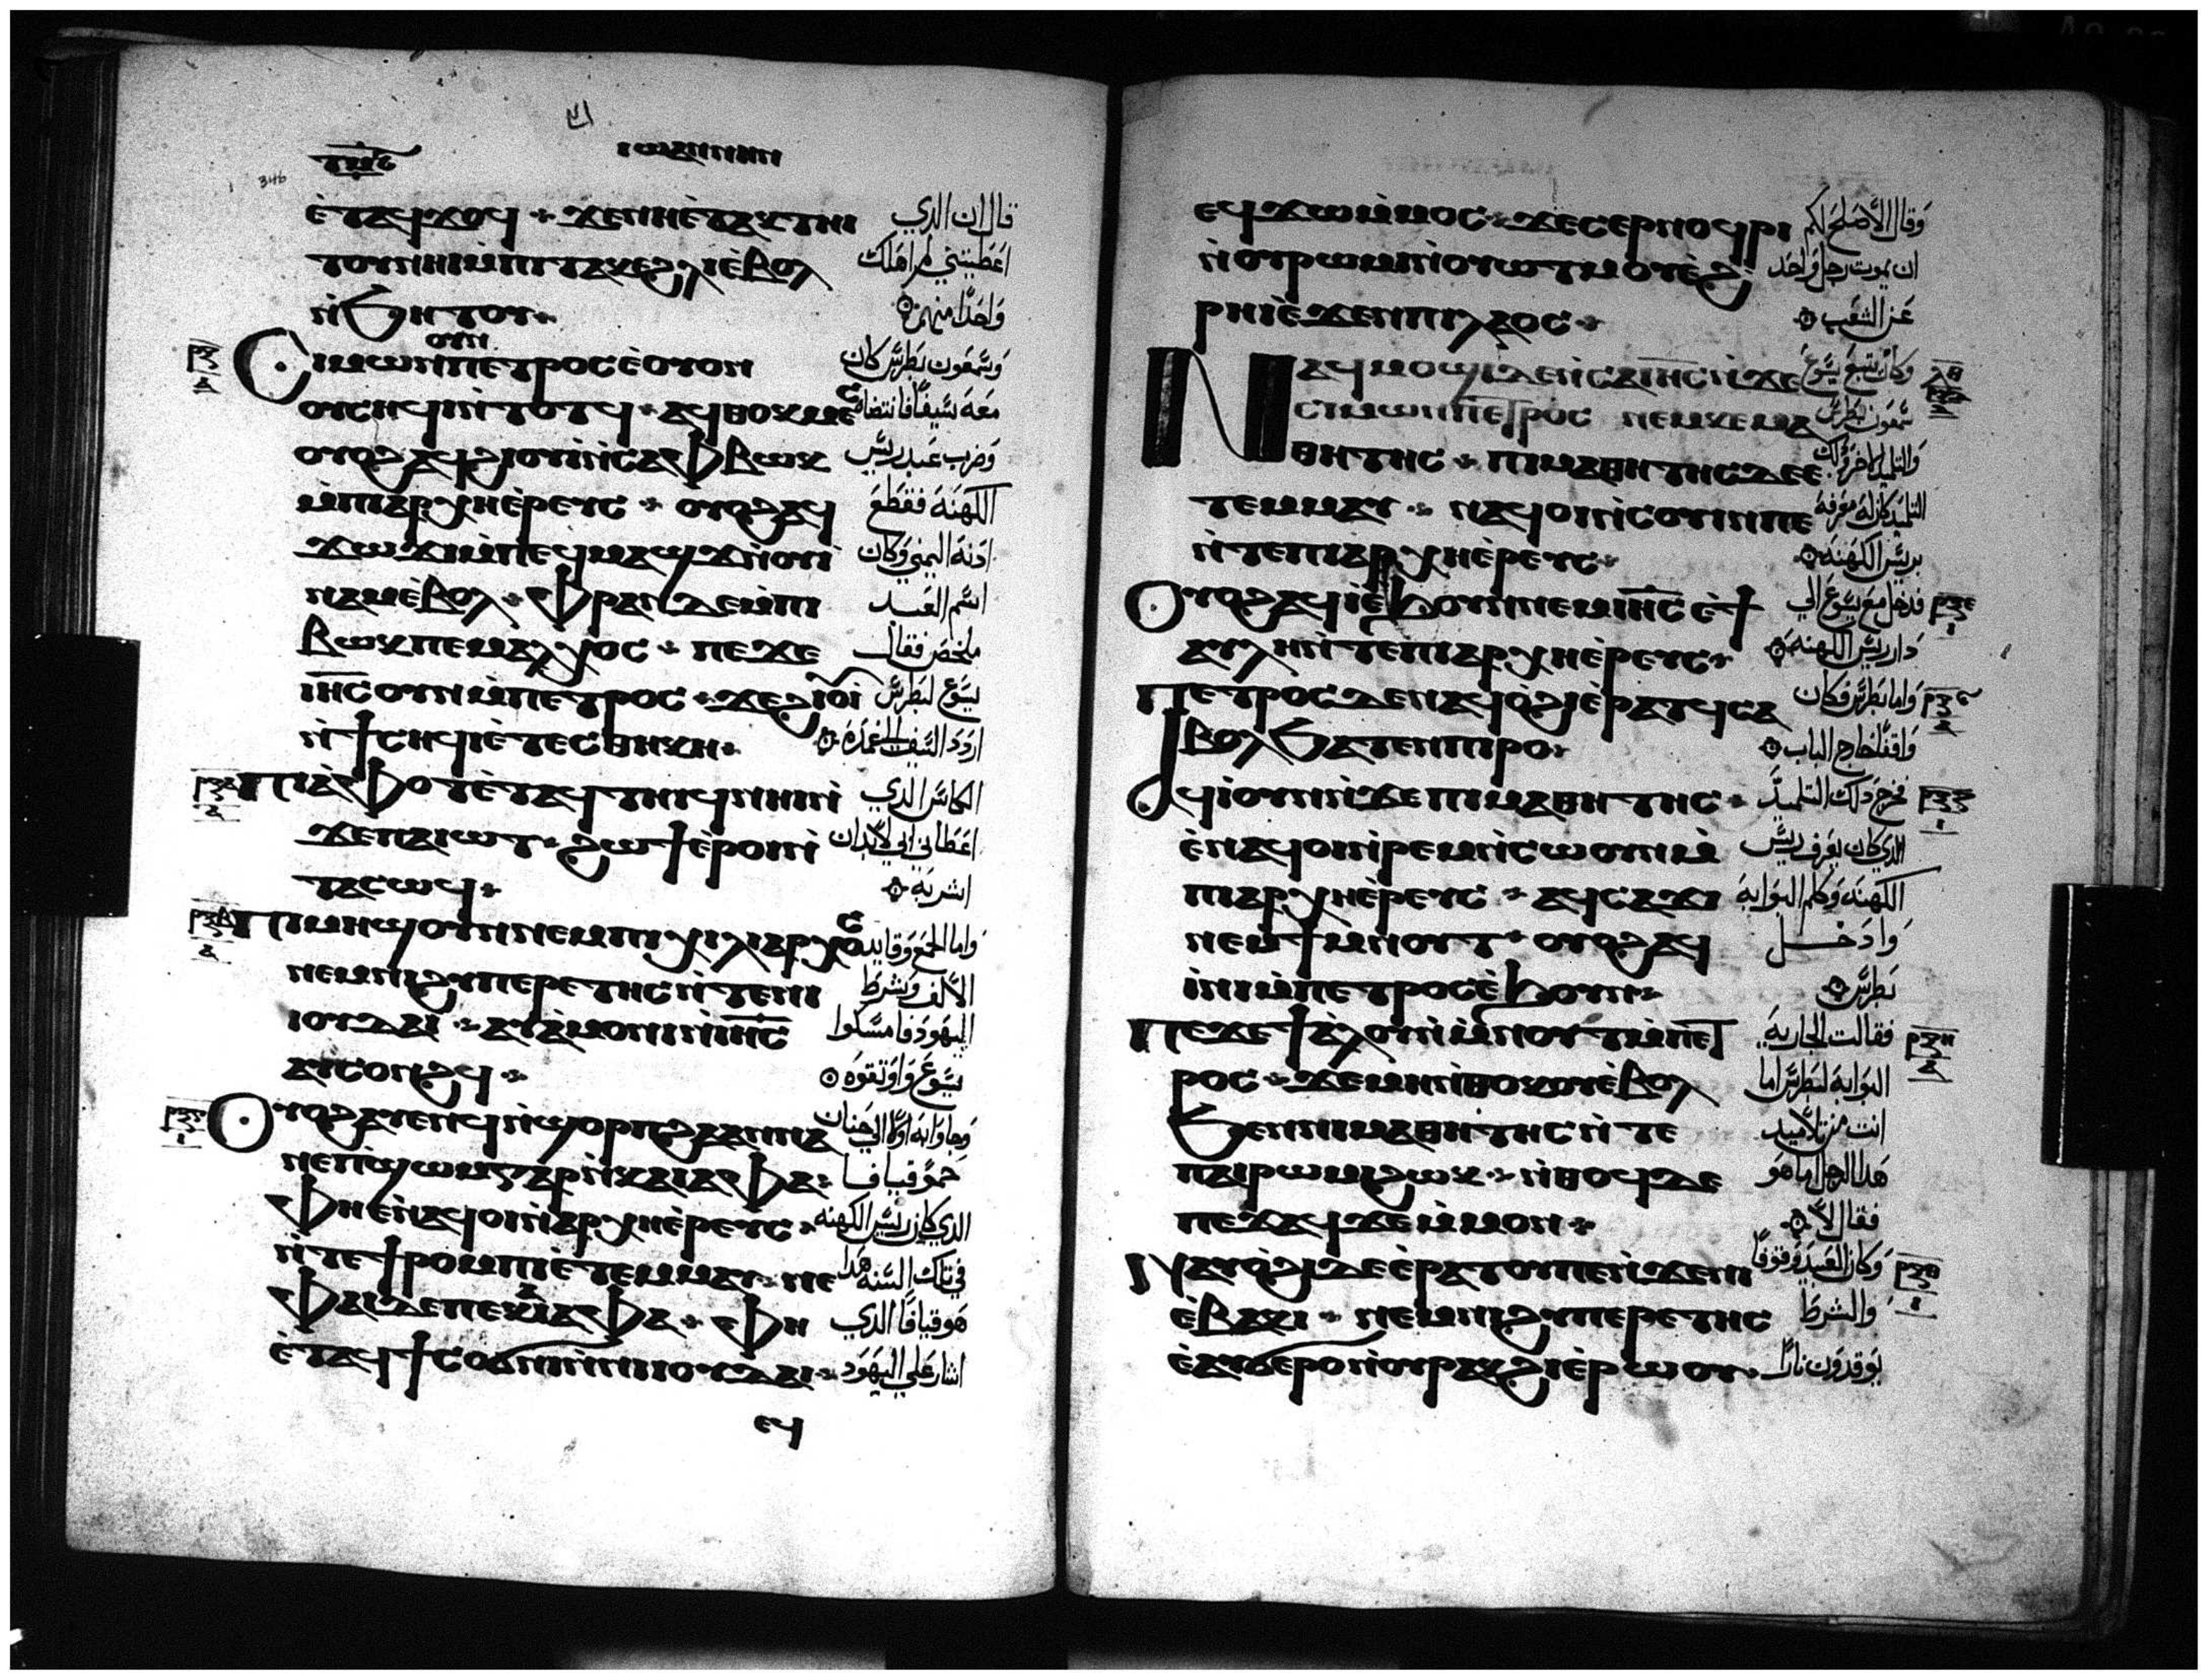 ⲓⲱⲁⲛⲛⲏⲛ
346
ⲉ̀ⲧⲁϥϫⲟϥ ⲁ ϫⲉⲛⲏⲉ̀ⲧⲁⲕⲧⲏⲓ قال ان الدي
ⲧⲟⲩⲛⲏⲓⲙ̀ⲡⲓⲧⲁⲕⲉϩⲗⲓⲉ̀ⲃⲟⲗ اعطيتني لم اهلك
ⲛ̀ϧⲏⲧⲟⲩ واحدا منهم
ⲟⲩⲛ
Ⲥⲓⲙⲱⲛⲡⲉⲧⲣⲟⲥⲉ̀ⲟⲩⲟⲛ وسمعون بطرس كان
ⲟⲩⲥⲏϥⲓⲛ̀ⲧⲟⲧϥ ⲁϥⲑⲟⲕⲙⲉϥ معه سيفا فانتضاه
ⲟⲩⲟϩⲁϥϩⲓⲟⲩⲓⲛ̀ⲥⲁⲫⲃⲱⲕ وضرب عبد ريس
ⲙ̀ⲡⲓⲁⲣⲭⲏⲉ̀ⲣⲉⲩⲥ ⲟⲩⲟϩⲁϥ الكهنه فقطع
ϫⲱϫⲓⲙ̀ⲡⲉϥⲙⲁϣϫⲛ̀ⲟⲩⲓ ادنه اليمني وكان
ⲛⲁⲙⲉ̀ⲃⲟⲗ ⲫⲣⲁⲛⲇⲉⲙ̀ⲡⲓ اسم العبد
ⲃⲱⲕⲡⲉⲙⲁⲗⲭⲟⲥ ⲡⲉϫⲉ ملخص فقال
ⲓⲏ̅ⲥ̅ⲟⲩⲛⲙ̀ⲡⲉⲧⲣⲟⲥ ϫⲉϩⲓⲟⲩⲓ يسوع لبطرس
ⲛ̀ϯⲥⲏϥⲓⲉ̀ⲧⲉⲥⲑⲏⲕⲏ اردد السيف الي غمده
ⲡⲓⲁ̀ⲫⲟⲧⲉ̀ⲧⲁϥⲧⲏⲓϥⲛⲏⲓⲛ̀ الكاس الدي
ϫⲉⲡⲁⲓⲱⲧ ϩⲱϯⲉ̀ⲣⲟⲓⲛ̀ اعطاني ابي لابد ان
ⲧⲁⲥⲱϥ اشربه
ⲡⲓⲙⲏϣⲟⲩⲛⲛⲉⲙⲡⲓⲭⲓⲗⲓⲁⲣⲭⲟⲥ واما الجمع وقايد
ⲛⲉⲙⲛⲓϩⲩⲡⲉⲣⲉⲧⲏⲥⲛ̀ⲧⲉⲛⲓ الالف وشرط
ⲓⲟⲩⲇⲁⲓ ⲁⲩⲁ̀ⲙⲟⲛⲓⲛ̀ⲓⲏ̅ⲥ̅ اليهود فامسكوا
ⲁⲩⲥⲟⲛϩϥ يسوع واوتقوه
Ⲟⲩⲟϩⲁⲩⲉⲛϥⲛ̀ϣⲟⲣⲡϩⲁⲁⲛⲛⲁ وجاوا به اولا الي حنان
ⲛⲉⲡϣⲱⲙⲅⲁⲣⲛ̀ⲕⲁⲓⲁⲫⲁ حمو قيافا
ⲫⲏⲉ̀ⲛⲁϥⲟⲓⲛ̀ⲁⲣⲭⲏⲉ̀ⲣⲉⲩⲥ الدي كان ريس الكهنه
ⲛ̀ⲧⲉϯⲣⲟⲙⲡⲓⲉ̀ⲧⲉⲙⲙⲁⲩ ⲛⲉ في تلك السنه هدا
ⲫⲁⲓⲇⲉⲡⲉⲕⲁⲓⲁⲫⲁ ⲫⲏ هو قيافا الدي
ⲉ̀ⲧⲁϥϯⲥⲟϭⲛⲓⲛ̀ⲛⲓⲓⲟⲩⲇⲁⲓ اشار علي اليهود
ⲉϥ
ⲉϥϫⲱⲙ̀ⲙⲟⲥ ϫⲉⲥⲉⲣⲛⲟϥⲣⲓ وقال الاصلح لكم
ⲛ̀ⲟⲩⲣⲱⲙⲓⲛ̀ⲟⲩⲱⲧⲙⲟⲩⲉ̀ϩ ان يموت رجل واحد
ⲣⲏⲓⲉ̀ϫⲉⲛⲡⲓⲗⲁⲟⲥ عن الشعب
Ⲛⲁϥⲙⲟϣⲓⲇⲉⲛ̀ⲥⲁⲓⲏ̅ⲥ̅ⲛ̀ϫⲉ وكان يتبع يسوع
ⲥⲓⲙⲱⲛⲡⲉⲧⲣⲟⲥ ⲛⲉⲙⲕⲉⲙⲁ سمعون بطرس
ⲑⲏⲧⲏⲥ ⲡⲓⲙⲁⲑⲏⲧⲏⲥⲇⲉⲉ والتلميد الاخر ودلك
ⲧⲉⲙⲙⲁⲩ ⲛⲁϥⲟⲓⲛ̀ⲥⲟⲩⲓⲛⲡⲉ التلميد كان له معرفه
ⲛ̀ⲧⲉⲡⲓⲁⲣⲭⲏⲉ̀ⲣⲉⲩⲥ بريس الكهنه
Ⲟⲩⲟϩⲁϥⲓⲉ̀ϧⲟⲩⲛⲛⲉⲙⲓⲏ̅ⲥ̅ⲉ̀ϯ فدخل مع يسوع الي
ⲁⲩⲗⲏⲛ̀ⲧⲉⲡⲓⲁⲣⲭⲏⲉ̀ⲣⲉⲩⲥ دار ريس الكهنه
ⲡⲉⲧⲣⲟⲥⲇⲉⲛⲁϥⲟ̀ϩⲓⲉ̀ⲣⲁⲧϥⲥⲁ واما بطرس فكان
ⲃⲟⲗϧⲁⲧⲉⲛⲡⲓⲣⲟ واقفا خارج الباب
ⲁϥⲓ̀ⲟⲩⲛⲛ̀ϫⲉⲡⲓⲙⲁⲑⲏⲧⲏⲥ فخرج دلك التلميد
ⲉ̀ⲛⲁϥⲟⲓⲛ̀ⲣⲉⲙⲛ̀ⲥⲱⲟⲩⲛⲙ̀ الدي كان يعرف ريس
ⲡⲓⲁⲣⲭⲏⲉ̀ⲣⲉⲩⲥ ⲁϥⲥⲁϫⲓ الكهنه وكلم البوابه
ⲛⲉⲙϯⲙ̀ⲛⲟⲩⲧ ⲟⲩⲟϩⲁϥ وادخل
ⲓ̀ⲛⲓⲙ̀ⲡⲉⲧⲣⲟⲥⲉ̀ϧⲟⲩⲛ بطرس
ⲡⲉϫⲉϯⲁ̀ⲗⲟⲩⲙ̀ⲙⲛⲟⲩⲧⲙ̀ⲡⲉⲧ فقالت الجاريه
ⲣⲟⲥ ϫⲉⲙⲏⲛ̀ⲑⲟⲕⲟⲩⲉ̀ⲃⲟⲗ البوابه لبطرس اما
ϧⲉⲛⲛⲓⲙⲁⲑⲏⲧⲏⲥⲛ̀ⲧⲉ انت من تلاميد
ⲡⲁⲓⲣⲱⲙⲓϩⲱⲕ ⲛ̀ⲑⲟϥⲇⲉ هدا الرجل اما هو
ⲡⲉϫⲁϥϫⲉⲙ̀ⲙⲟⲛ فقال لا
ⲛⲁⲩⲟ̀ϩⲓⲇⲉⲉ̀ⲣⲁⲧⲟⲩⲡⲉⲛ̀ϫⲉⲛⲓ وكان العبيد وقوفا
ⲉ̀ⲃⲓⲁⲓⲕ ⲛⲉⲙⲛⲓϩⲩⲡⲉⲣⲉⲧⲏⲥ والشرط
ⲉ̀ⲁⲩϭⲉⲣⲟⲛ̀ⲟⲩⲣⲁⲕϩⲓⲉ̀ⲣⲱⲟⲩ يوقدون نارا